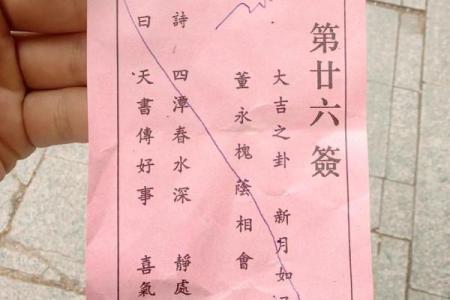 第廿六簽
大吉之卦 新月如
董永槐蔭相會
詩 四潭春水深 靜處
曰 天書傳好事 喜氣